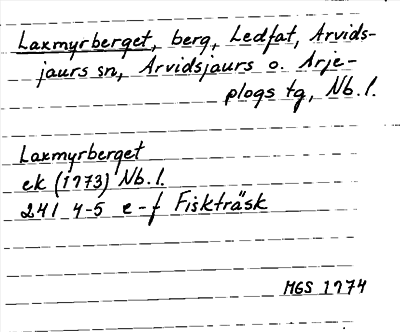 Laxmyrberget, berg, Ledfat, Arvids-
jaurs sn, Arvidsjaurs o. Arje-
plogs tg, Nb. l.
Laxmyrberget
ek (1973) Nb. l.
24I 4-5 e-f Fiskträsk
MGS 1974